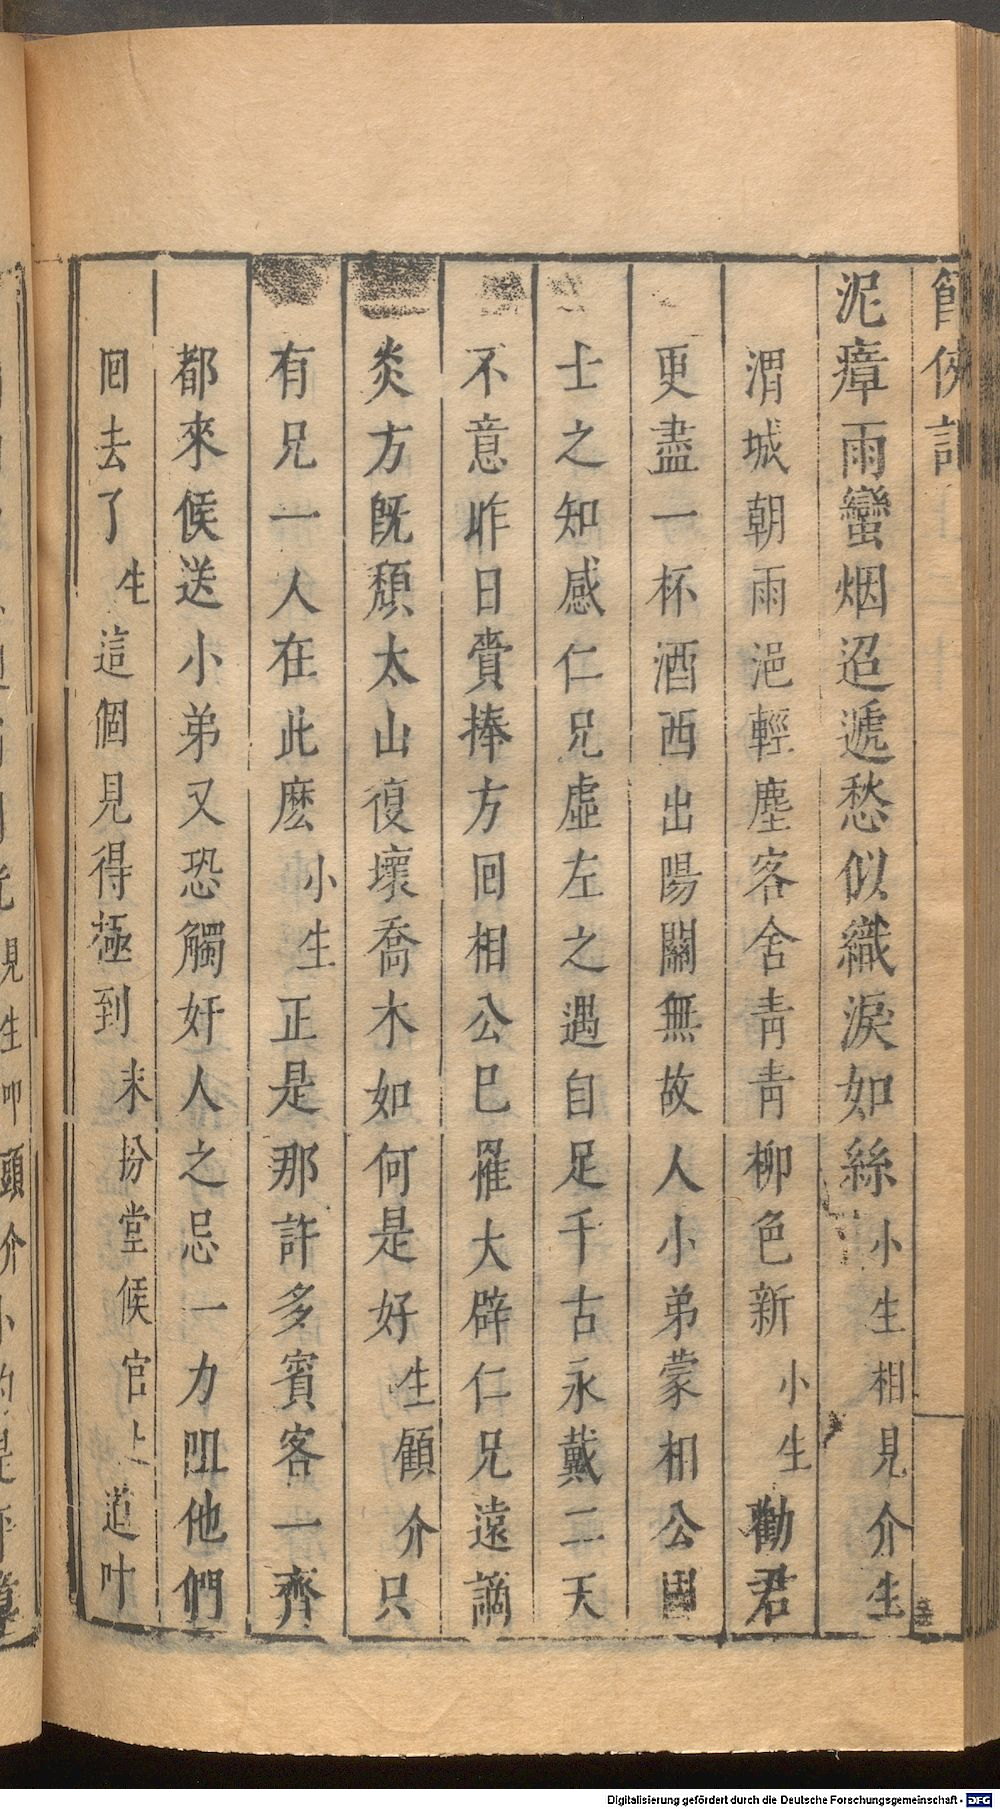 節俠記
泥瘴雨蠻烟迢遞愁似織淚如絲小生相見介生
渭城朝雨浥輕塵客舍靑靑柳色新小生勸君
更盡一杯酒西出陽關無故人小弟蒙相公國
士之知感仁兄虛左之遇自足千古永戴二天
不意昨日賫捧方回相公已罹大辟仁兄遠謫
炎方旣頹太山復壞喬木如何是好生顧介只
有兄一人在此麽小生正是那許多賓客一齊
都來候送小弟又恐觸奸人之忌一力阻他們
回去了生這個見得極到末扮堂候官上道叶
Digitalisierung gefördert durch die Deutsche Forschungsgemeinschaft - DFG